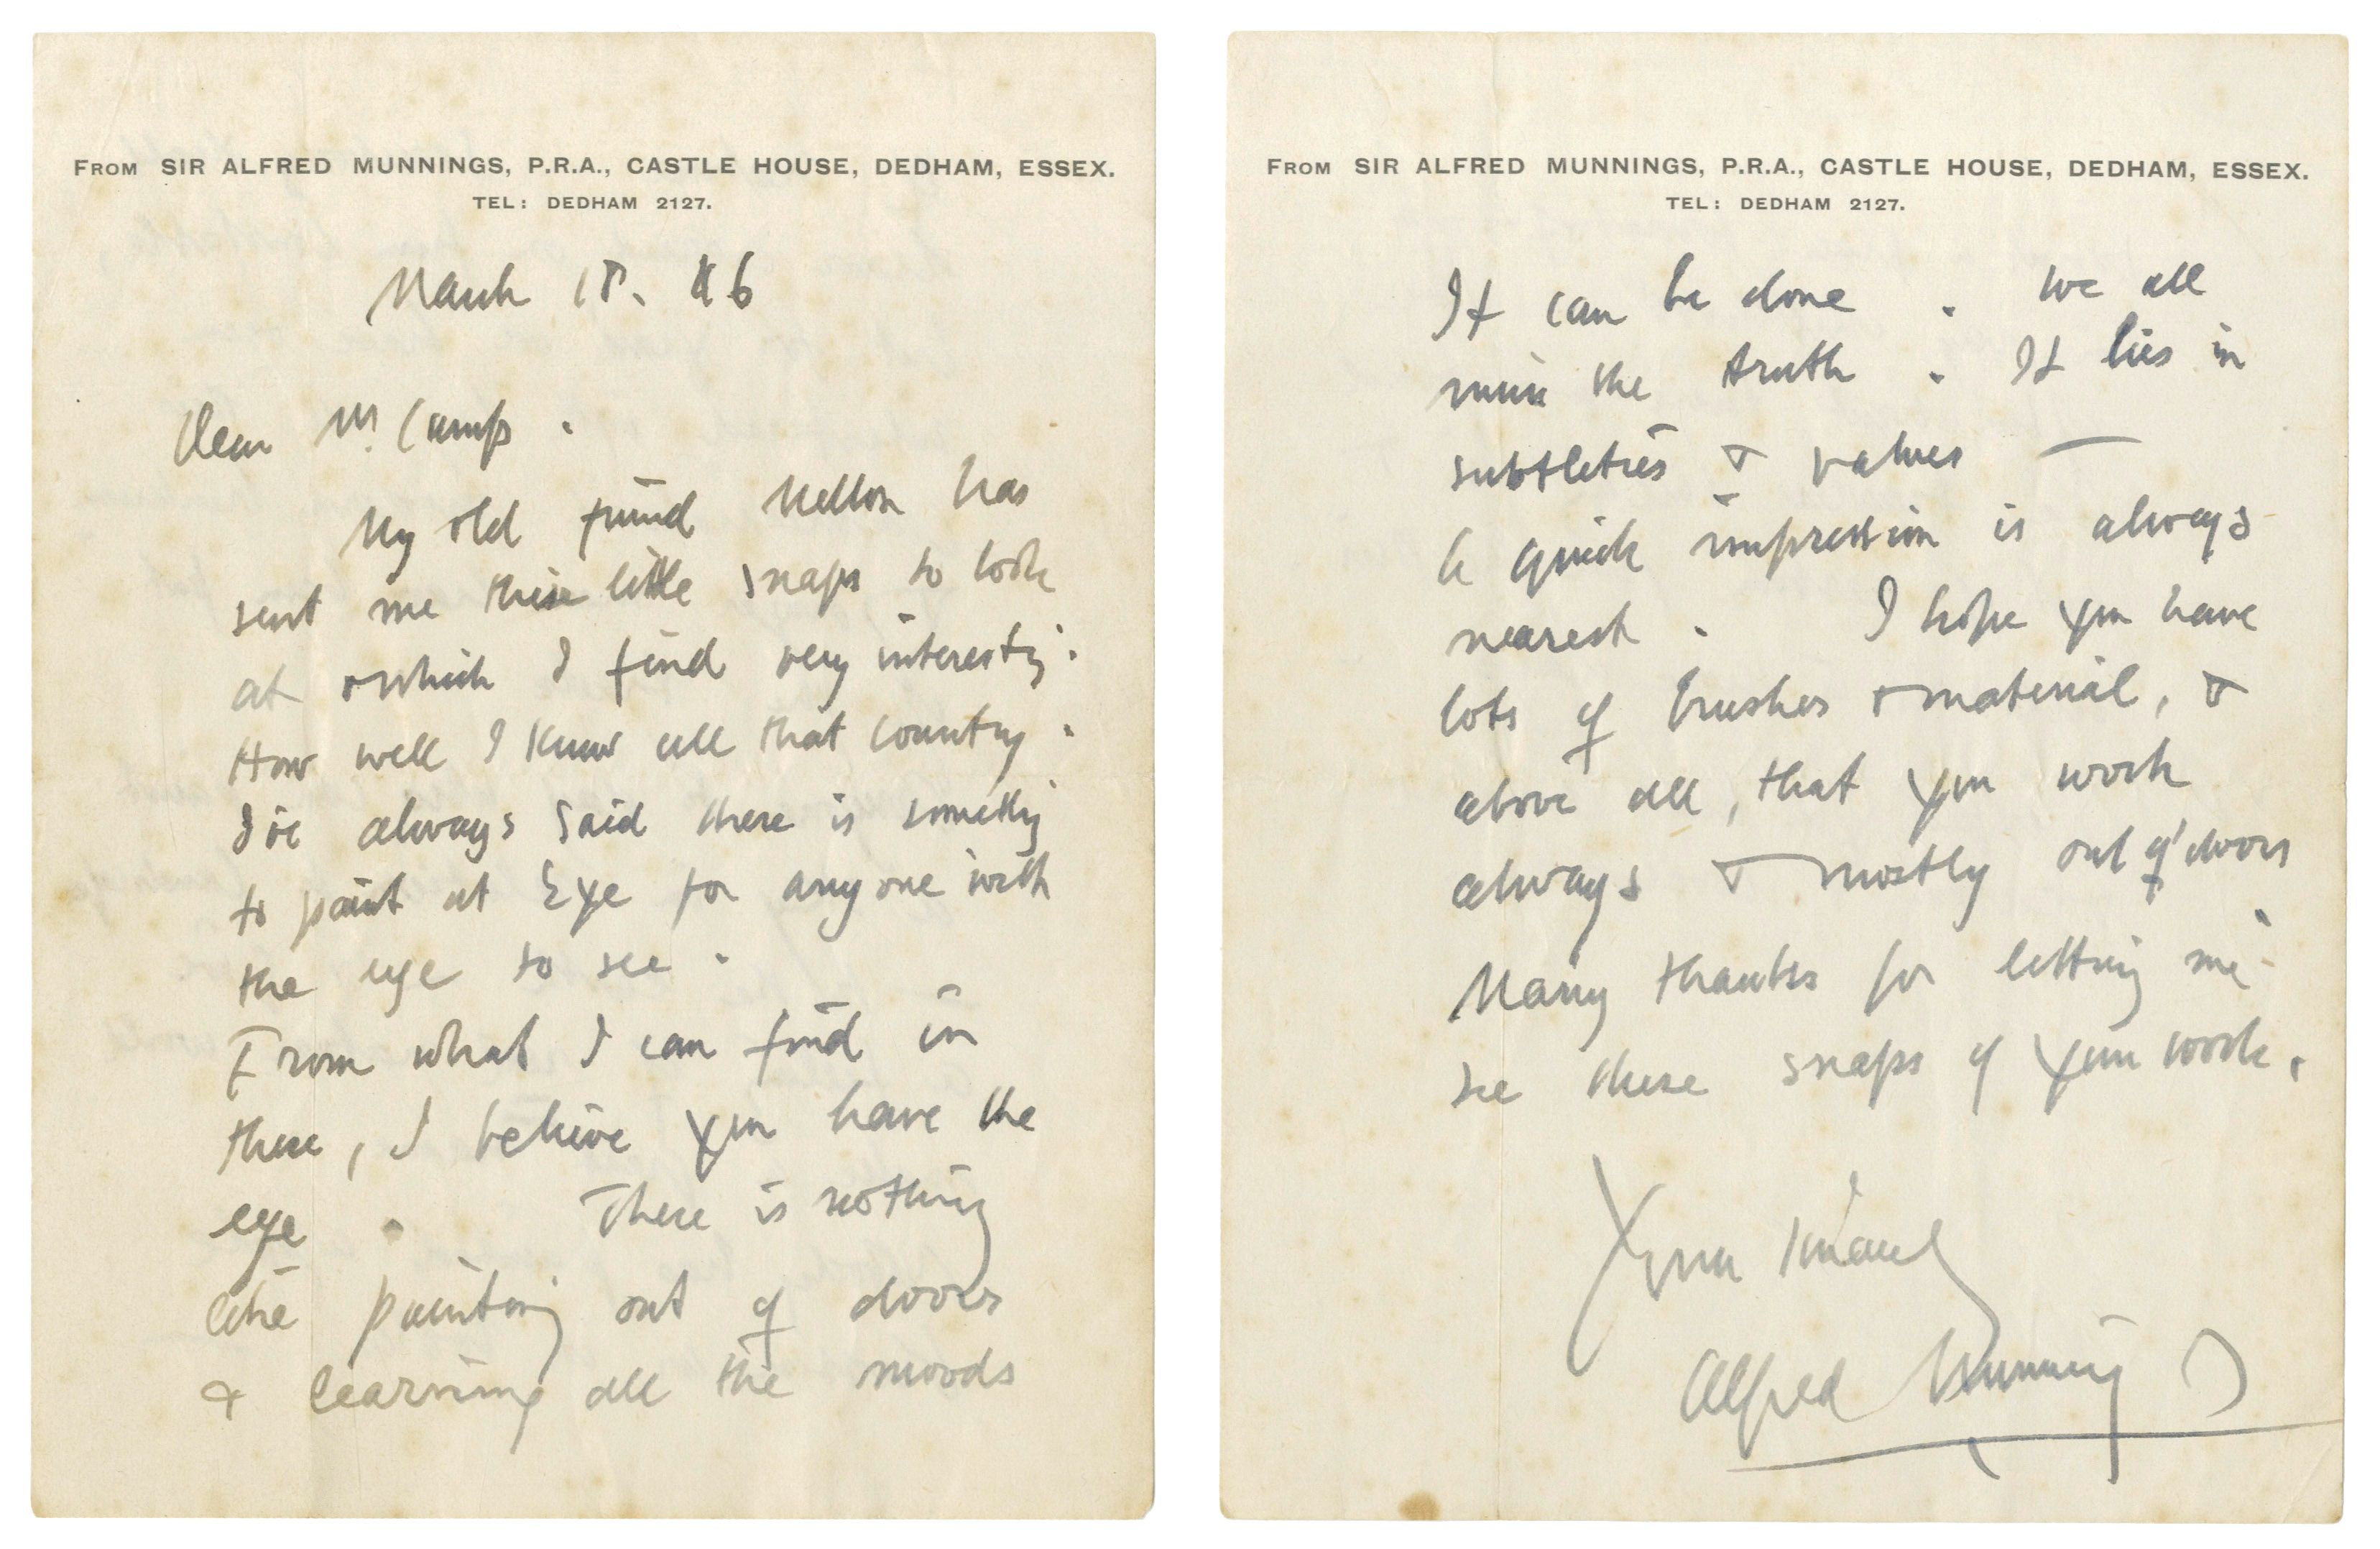 FROM SIR ALFRED MUNNINGS, P.R.A., CASTLE HOUSE, DEDHAM, ESSEX.
TEL: DEDHAM 2127.
March 18. 46
Dear Mr.
My old friend Mellon has
sent me these little snaps to look
at & which I find very interesting.
How well I know all that country.
I've always said there is something
to paint at Eye for anyone with
the eye to see.
From what I can find in
these, I believe you have the
eye. There is nothing
like painting out of doors
& learning all the moods
FROM SIR ALFRED MUNNINGS, P.R.A., CASTLE HOUSE, DEDHAM, ESSEX.
TEL: DEDHAM 2127.
It can be done. We all
miss the truth. It lies in
subtleties & values —
A quick impression is always
nearest. I hope you have
lots of brushes & material, &
above all, that you work
always & mostly out of doors.
Many thanks for letting me
see these snaps of your work.
Yours sincerely
Alfred Munnings